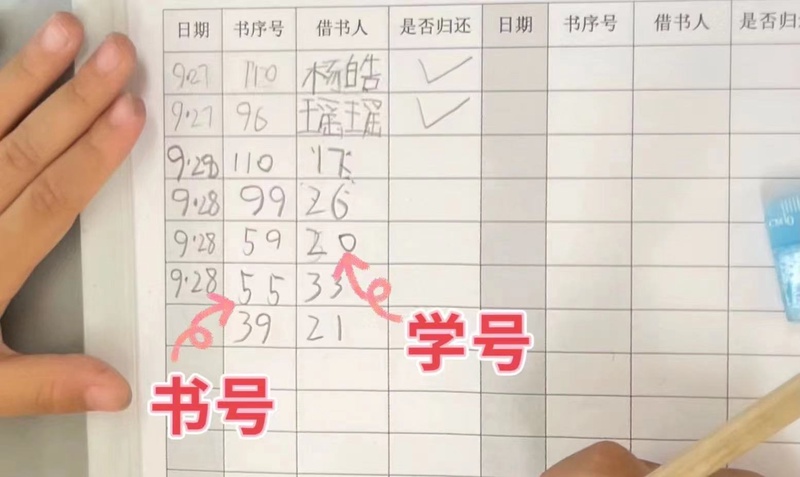 日期 书序号 借书人 是否归还 日期 书序号 借书人 是否归
9.27 110 杨皓
9.27 96 瑶瑶
9.28 110
9.28 99 26
9.28 59 20
9.28 55 33
39 21
学号
书号